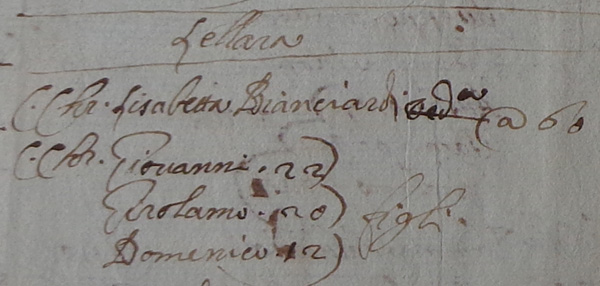 Lellara
C. Chr. Lisabetta Bianciardi ved.a (a 60
C. Chr. Giovanni . 22)
Girolamo . 20) figli.
Domenico . 12)